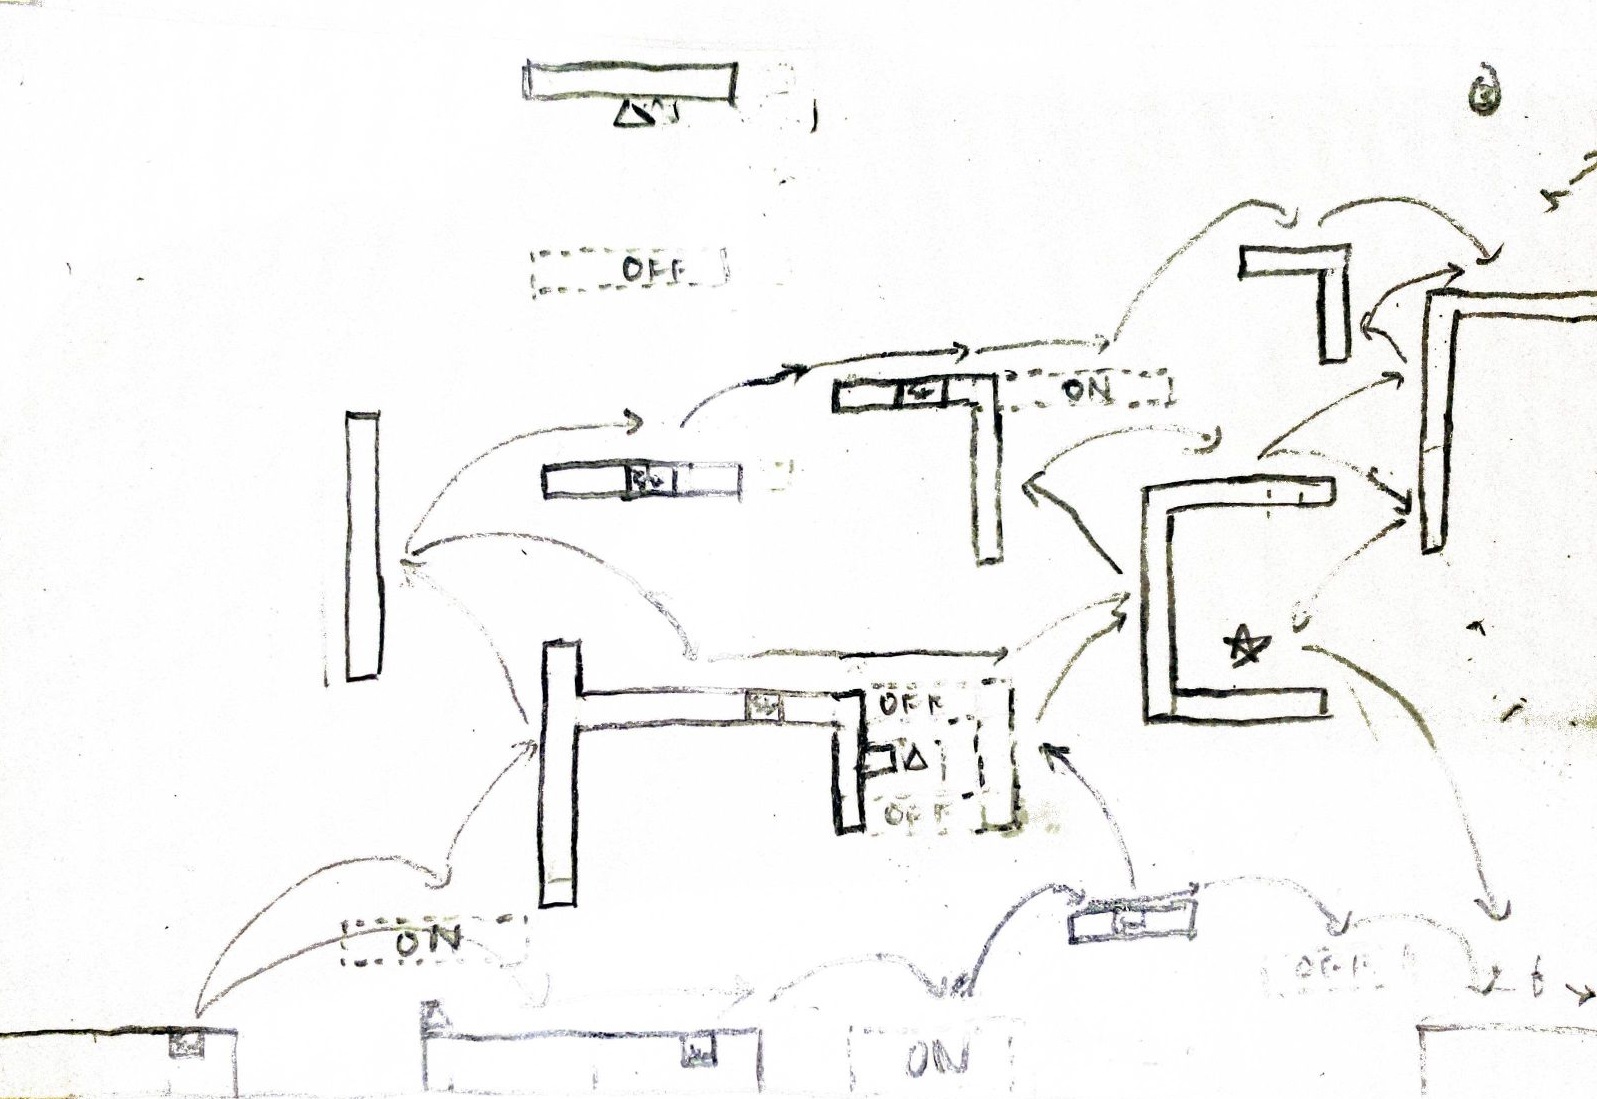 OFF
ON
OFF
OFF
ON
OFF
ON